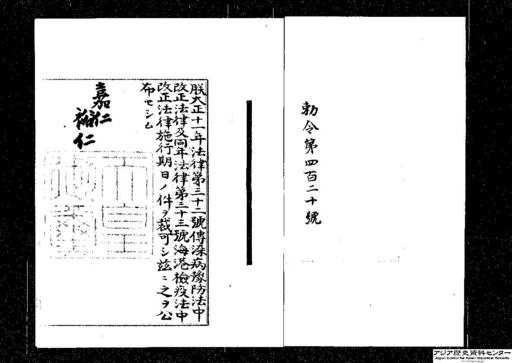 勅令第四百二十號
朕大正十一年法律第三十二號傳染病豫防法中
改正法律及同年法律第三十三號海港檢疫法中
改正法律施行期日ノ件ヲ裁可シ茲ニ之ヲ公
布セシム
嘉仁
裕仁
アジア歴史資料センター
Japan Center for Asian Historical Records